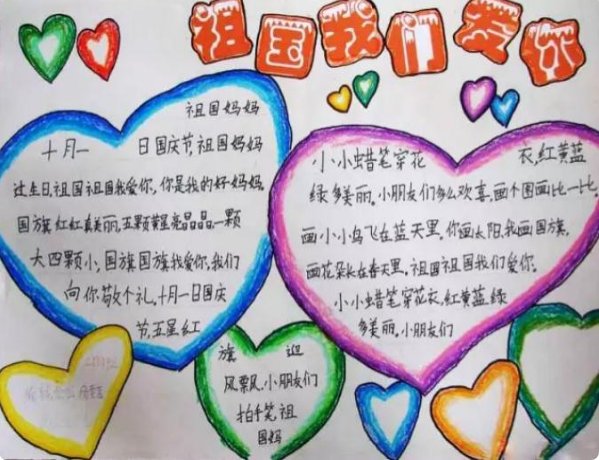 祖国我们爱你
祖国妈妈
十月一 日国庆节,祖国妈妈
过生日,祖国祖国我爱你,你是我的好妈妈,
国旗红红真美丽,五颗黄星亮晶晶,一颗
大四颗小,国旗国旗我爱你,我们
向你敬个礼,十月一日国庆
节,五星红
旗 迎
风飘,小朋友们
拍手笑,祖
国妈
小小蜡笔穿花 衣,红黄蓝
绿多美丽。小朋友们多么欢喜,画个图画比一比。
画小小鸟飞在蓝天里。你画太阳,我画国旗,
画花朵长在春天里。祖国祖国我们爱你。
小小蜡笔穿花衣,红黄蓝绿
多美丽。小朋友们